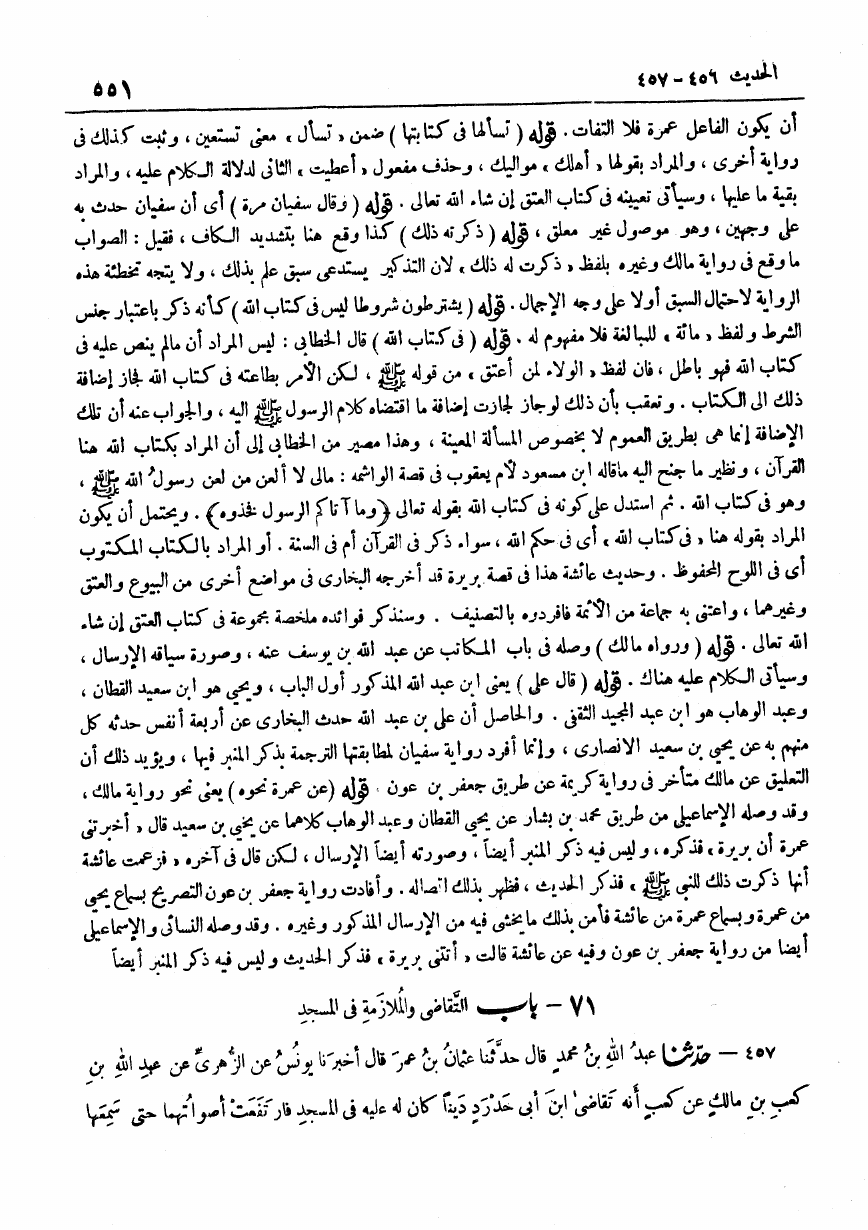 الحديث ٤٥٦ - ٤٥٧
٥٥١
أن يكون الفاعل عمرة فلا التفات . قوله ( تسألها فى كتابتها ) ضمن « تسأل » معنى تستعين ، وثبت كذلك فى
رواية أخرى ، والمراد بقولها « أهلك » مواليك ، وحذف مفعول « أعطيت » الثانى لدلالة الكلام عليه ، والمراد
بقية ما عليها ، وسيأتى تعيينه فى كتاب العتق إن شاء الله تعالى . قوله ( وقال سفيان مرة ) أى أن سفيان حدث به
على وجهين ، وهو موصول غير معلق ، قوله ( ذكرته ذلك ) كذا وقع هنا بتشديد الكاف ، فقيل : الصواب
ما وقع فى رواية مالك وغيره بلفظ « ذكرت له ذلك » لان التذكير يستدعى سبق علم بذلك ، ولا يتجه تخطئة هذه
الرواية لاحتمال السبق أولا على وجه الإجمال . قوله ( يشترطون شروطا ليس فى كتاب الله ) كأنه ذكر باعتبار جنس
الشرط ولفظ « مائة » للمبالغة فلا مفهوم له . قوله ( فى كتاب الله ) قال الخطابى : ليس المراد أن مالم ينص عليه فى
كتاب الله فهو باطل ، فان لفظ « الولاء لمن أعتق » من قوله ﷺ ، لكن الأمر بطاعته فى كتاب الله فجاز إضافة
ذلك الى الكتاب . وتعقب بأن ذلك لوجاز لجازت إضافة ما اقتضاه كلام الرسول ﷺ اليه ، والجواب عنه أن تلك
الإضافة إنما هى بطريق العموم لا بخصوص المسألة المعينة ، وهذا مصير من الخطابى إلى أن المراد بكتاب الله هنا
القرآن ، ونظير ما جنح اليه ماقاله ابن مسعود لأم يعقوب فى قصة الواشمة : مالى لا ألعن من لعن رسولُ الله ﷺ ،
وهو فى كتاب الله . ثم استدل على كونه فى كتاب الله بقوله تعالى ﴿وما آتاكم الرسول فخذوه﴾ . ويحتمل أن يكون
المراد بقوله هنا « فى كتاب الله » أى فى حكم الله ، سواء ذكر فى القرآن أم فى السنة . أو المراد بالكتاب المكتوب
أى فى اللوح المحفوظ . وحديث عائشة هذا فى قصة بريرة قد أخرجه البخارى فى مواضع أخرى من البيوع والعتق
وغيرهما ، واعتنى به جماعة من الأئمة فافردوه بالتصنيف . وسنذكر فوائده ملخصة مجموعة فى كتاب العتق إن شاء
الله تعالى . قوله ( ورواه مالك ) وصله فى باب المكاتب عن عبد الله بن يوسف عنه ، وصورة سياقه الإرسال ،
وسيأتى الكلام عليه هناك . قوله ( قال على ) يعنى ابن عبد الله المذكور أول الباب ، ويحيى هو ابن سعيد القطان ،
وعبد الوهاب هو ابن عبد المجيد الثقفى . والحاصل أن على بن عبد الله حدث البخارى عن أربعة أنفس حدثه كل
منهم به عن يحيى بن سعيد الانصارى ، وإنما أفرد رواية سفيان لمطابقتها الترجمة بذكر المنبر فيها ، ويؤيد ذلك أن
التعليق عن مالك متأخر فى رواية كريمة عن طريق جعفر بن عون . قوله (عن عمرة نحوه) يعنى نحو رواية مالك ،
وقد وصله الإسماعيلى من طريق محمد بن بشار عن يحيى القطان وعبد الوهاب كلاهما عن يحيى بن سعيد قال « أخبرتنى
عمرة أن بريرة » فذكره ، وليس فيه ذكر المنبر أيضاً ، وصورته أيضاً الإرسال ، لكن قال فى آخره « فزعمت عائشة
أنها ذكرت ذلك للنبى ﷺ » فذكر الحديث ، فظهر بذلك اتصاله . وأفادت رواية جعفر بن عون التصريح بسماع يحيى
من عمرة وبسماع عمرة من عائشة فأمن بذلك ما يخشى فيه من الإرسال المذكور وغيره . وقد وصله النسائى والإسماعيلى
أيضا من رواية جعفر بن عون وفيه عن عائشة قالت « أتتنى بريرة » فذكر الحديث وليس فيه ذكر المنبر أيضاً
٧١ - باب التَّقاضى والمُلازَمةِ فى المسجدِ
٤٥٧ - حدّثنا عبدُ اللهِ بنُ محمدٍ قال حدَّثَنا عثمانُ بنُ عمرَ قال أخبرَنا يونُسُ عن الزُّهرىِّ عن عبدِ اللهِ بنِ
كعبِ بنِ مالكٍ عن كعبٍ أنه تَقاضىٰ ابنَ أبى حَدْرَدٍ دَيناً كان له عليه فى المسجدِ فارتَفَعَتْ أصواتُهما حتى سَمِعَها